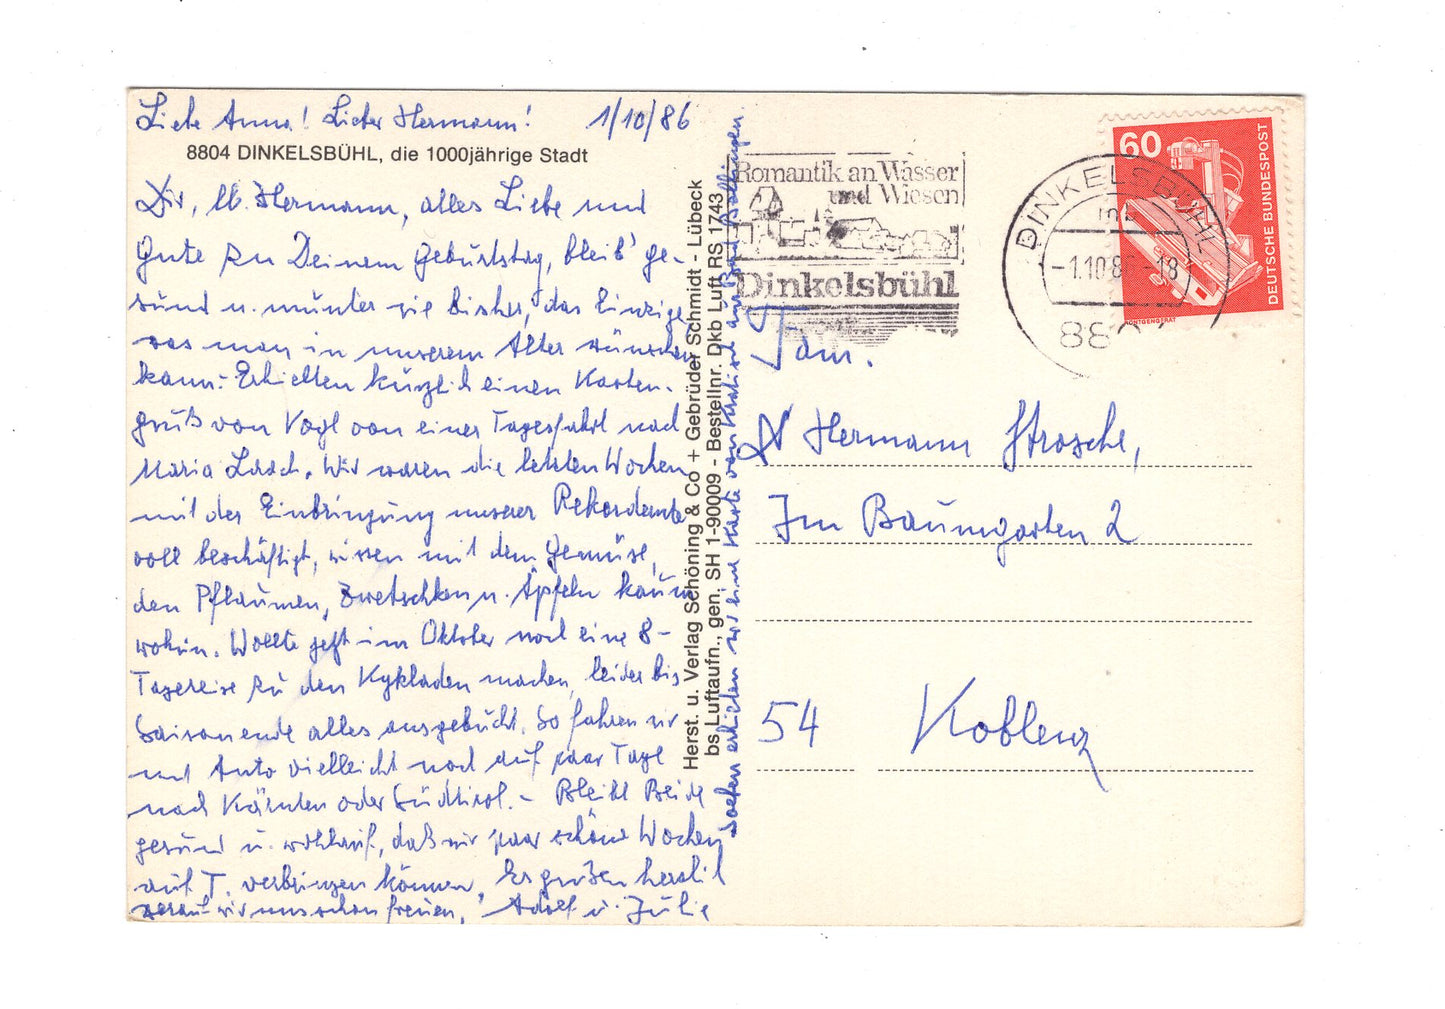 Liebe Anna! Lieber Hermann! 1/10/86
8804 DINKELSBÜHL, die 1000jährige Stadt
Dir, lb. Hermann, alles Liebe und
Gute zu Deinem Geburtstag, bleib' ge-
sund u. munter wie bisher, das Einzige
was man in unserem Alter wünschen
kann. Erhielten kürzlich einen Karten-
gruß von Vogl von einer Tagesfahrt nach
Maria Laach. Wir waren die letzten Wochen
mit der Einbringung unserer Rekordernte
voll beschäftigt, wissen mit dem Gemüse,
den Pflaumen, Zwetschken u. Äpfeln kaum
wohin. Wollte jetzt im Oktober noch eine 8-
Tagereise zu den Kykladen machen, leider bis
Saisonende alles ausgebucht. So fahren wir
mit Auto vielleicht noch auf paar Tage
nach Kärnten oder Südtirol. - Bleibt Beide
gesund u. wohlauf, daß wir paar schöne Wochen
auf T. verbringen können,
worauf wir uns schon freuen.
Es grüßen herzlich
Adolf u. Julie
Soeben erhielten wir eine Karte von aus Bad
Herst. u. Verlag Schöning & Co + Gebrüder Schmidt - Lübeck
bs Luftaufn., gen. SH 1-90009 - Bestellnr. Dkb Luft RS 1743
Romantik an Wasser
und Wiesen
Dinkelsbühl
DINKELSBÜHL
-1.10.86-18
880
60
DEUTSCHE BUNDESPOST
RÖNTGENGERÄT
Fam.
Hermann Strosche,
Im Baumgarten 2
54 Koblenz